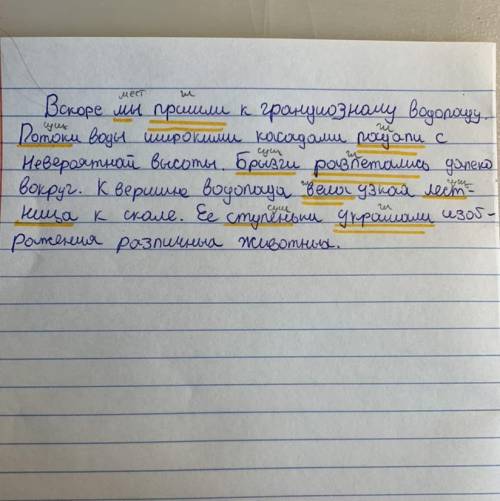 мест гл
Вскоре мы пришли к грандиозному водопаду.
сущ гл
Потоки воды широкими касадами падали с
сущ гл
невероятной высоты. Брызги разлетались далеко
гл сущ
вокруг. К вершине водопада вела узкая лест-
сущ гл
ница к скале. Ее ступеньки украшали изоб-
ражения различных животных.